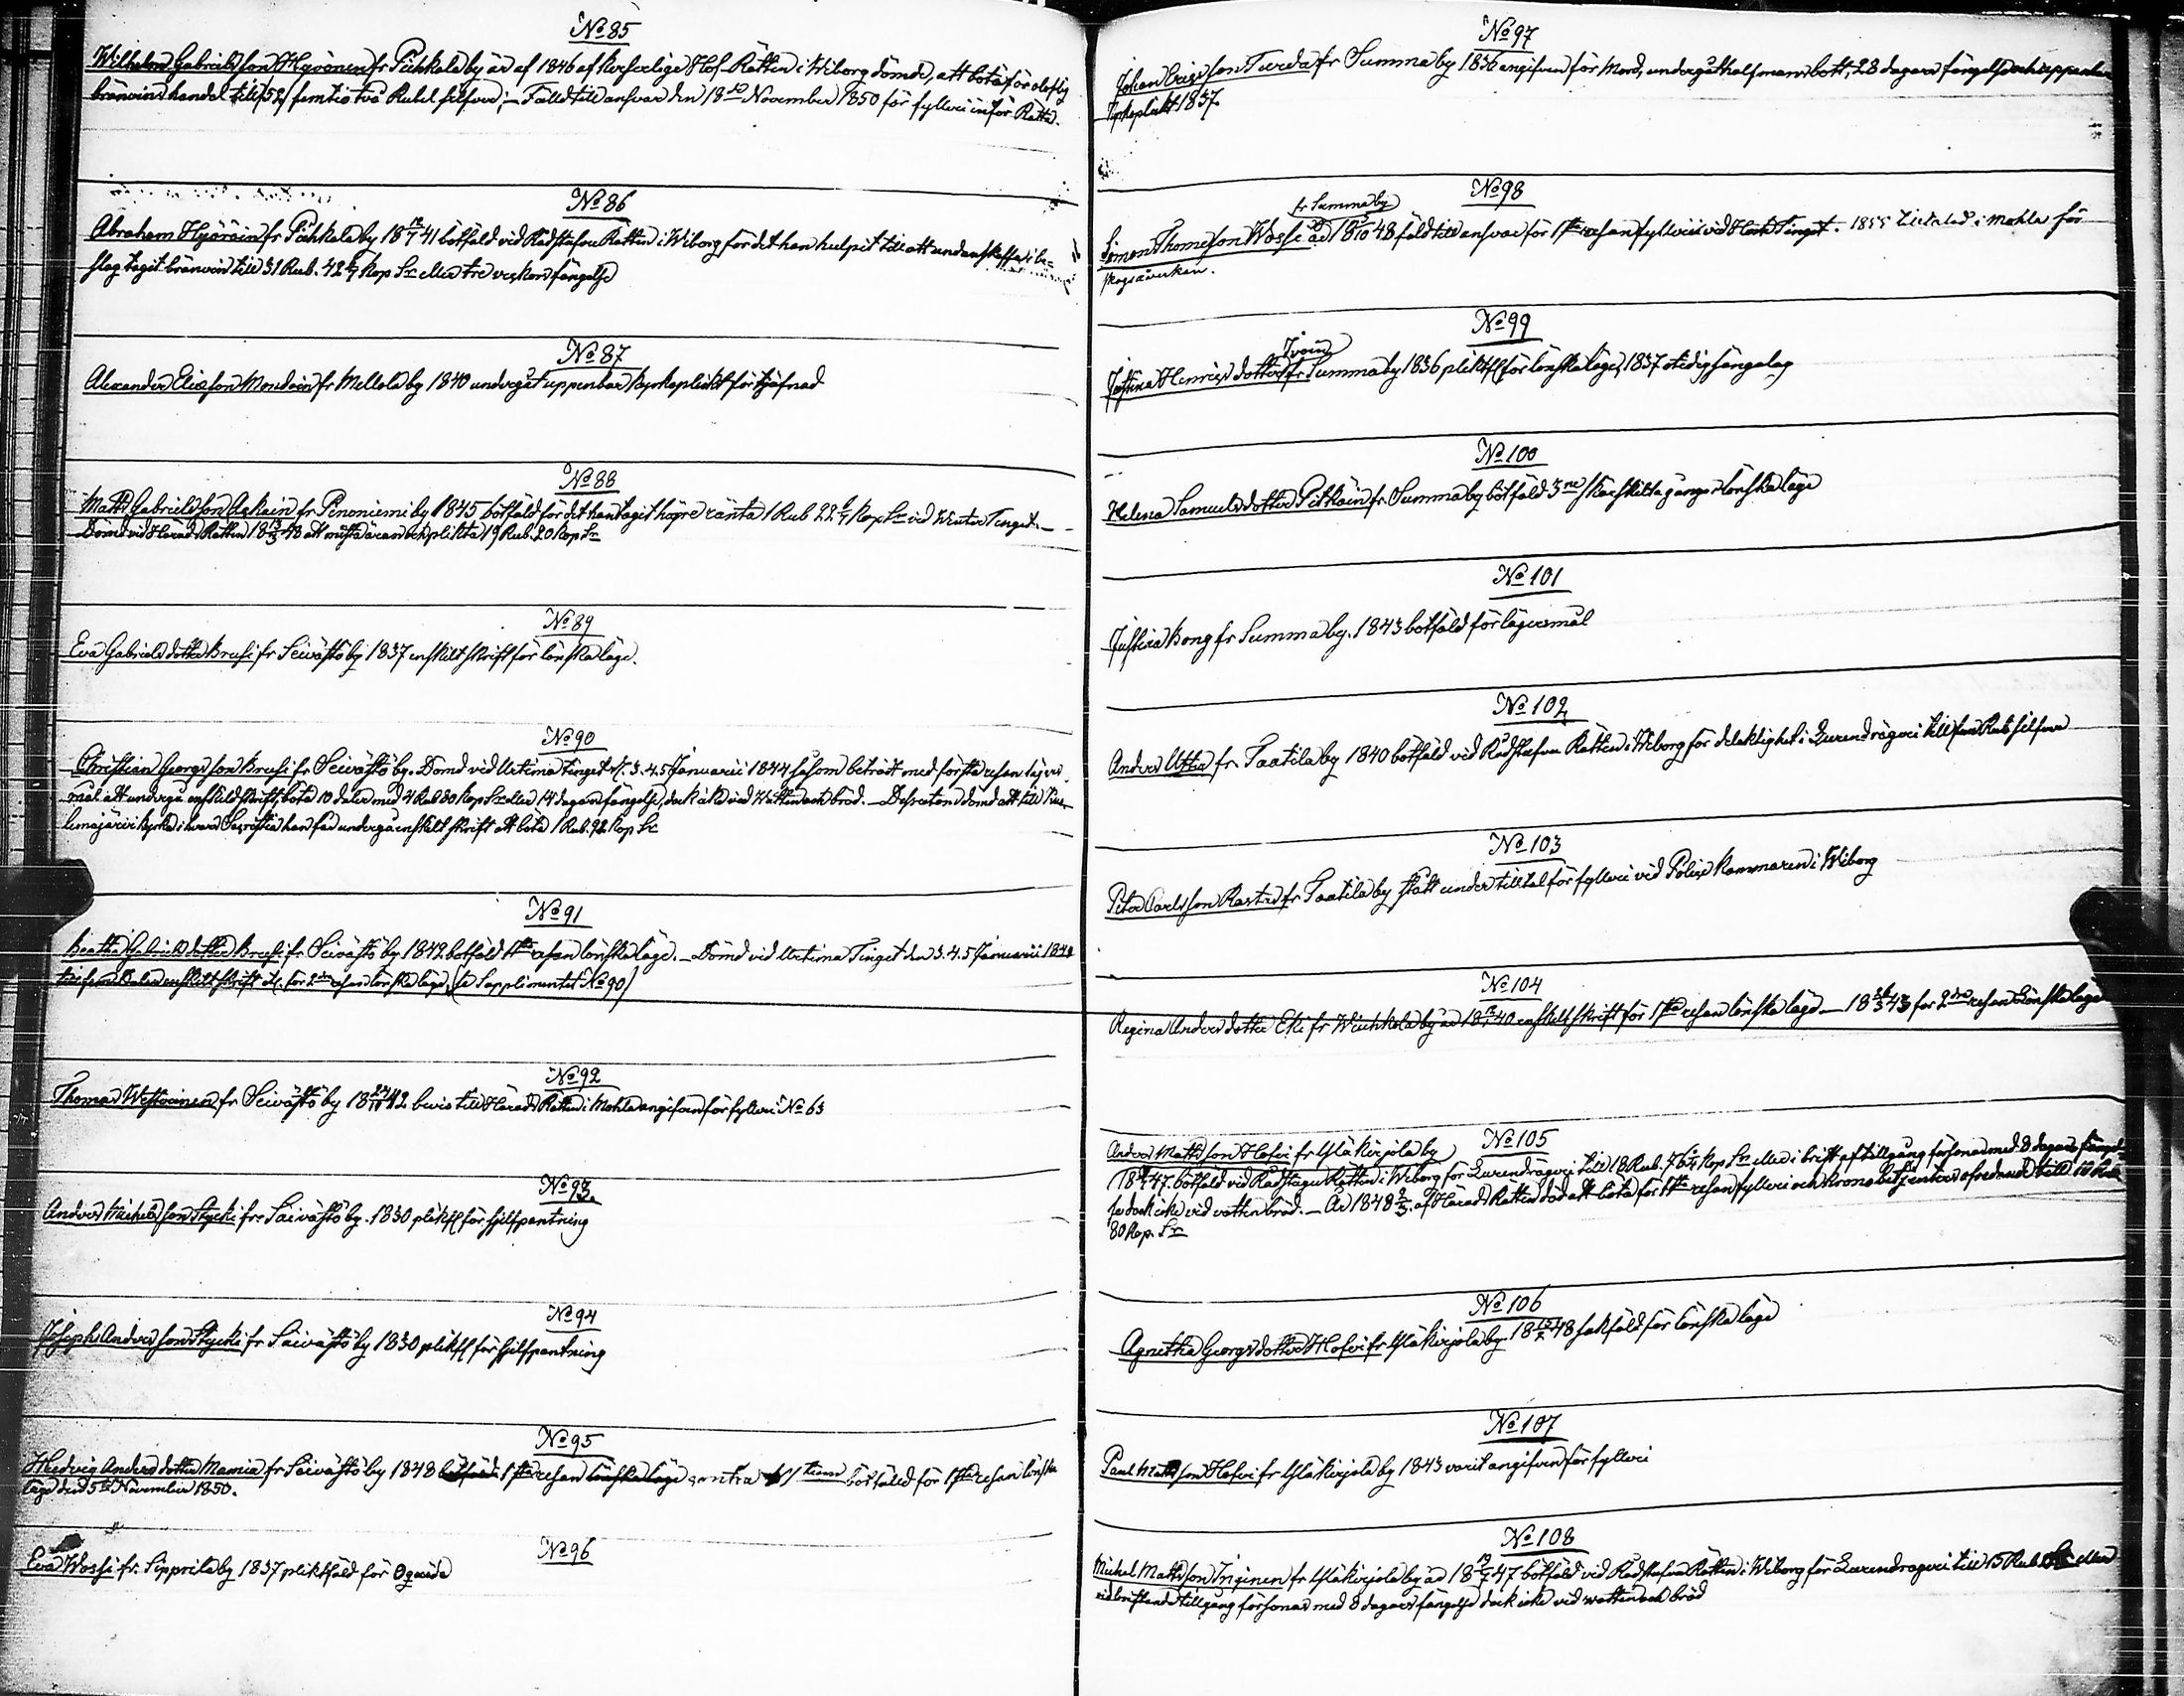 No 85
Wilhelm Gabrielsson Hyvönen fr Pihkala by är af 1846 af kejserlige Hof-Rätten i Wiborg dömd, att böta för olaflig
bränvins handel till 52/ femtio två Rubel silfver; – Fälld till ansvar den 18de November 1850 för fylleri inför Rätta.
No 86
Abraham Hyäräin fr Pihkala by 18 41 botfäld vid Rådstufvu Rätten i Wiborg för det han hulpit till att undanskaffa i be-
slag taget bränvin till 31 Rub. 42 6/7 kop Sr eller tre veckors fängelse
No 87
Alexander Eliasson Mondoin fr Mellola by 1840 undergåt uppenbar kyrkoplikt för tjufnad
No 88
Matts Gabrielsson Agkain fr Penoniemi by 1845 botfäld för det han tagit högre ränta 1 Rub 22 6/7 kop Sr vid Winter Tinget. –
Dömd vid Härads Rätten 18 13/3 48 att mista äran och plikta 19 Rub. 20 kop Sr
No 89
Eva Gabrielsdotter Kruus fr Seivästö by 1837 enskilt skrift för lönskaläge.
No 90
Christian Georgsson Kruus fr Seivästö by. Dömd vid Urtima tinget d. 3. 4. 5 Januarii 1844 såsom beträdt med första resan lägers
mål att undergå enskild skrift, böta 10 daler med 4 Rub 80 kop Sr eller 14 dagars fängelse, dock icke vid Watten och bröd. – Dessutom dömd att till Kuo-
lemajärvi kyrka i hvars Sacristia han får undergå enskilt skrift att böta 1 Rub. 92 kop Sr
No 91
Beatha Gabrielsdotter Kruus fr Seivästö by 1842 botfäld 1sta resan lönskaläge. – Dömd vid Urtima Tinget den 3. 4. 5 Januarii 1844
enskilt skrift för 2dra resan lönskaläge, (se Supplimentet No 90)
No 92
Thomas Westoinen fr Seivästö by 18 24/11 42 bevis till Härads Rätten i Mohla angifven för fylleri No 63
No 93.
Anders Mickelsson Stycki fr. Seivästö by. 1830 pliktf för sjelfpantning
No 94
Joseph Andersson Stycki fr Seivästö by 1830 pliktf för sjelfpantning
No 95
Hedvig Andersdotter Mamia fr Seivästö by 1848 botfäld 1sta resan lönskaläge botfäld för 1sta resan lönska
läge den 5te November 1850.
No 96
Eva Wossi fr. Sipprola by 1837 pliktfäld för Oqväde
No 97
Johan Ericsson Turda fr Summa by 1836 angifven för Mord, undergåt half mansbot, 28 dagars fängelse och uppenbar
Kyrkoplikt 1837.
No 98
fr Summa by
Simon Thomeson Wossi år 18 10 48 fäld till ansvar för 1sta resan fylleri vid Höst Tinget. 1855 tilltalad i Mohla för
skogsåverkan.
No 99
Ivoin
Justina Henricsdotter fr Summa by 1836 pliktf för lönskaläge, 1837 otidig sängelag
No 100
Helena Samuelsdotter Pitkäin fr. Summa by botfäld 3ne särskilta gånger lönskaläge
No 101
Justina Kong fr Summa by. 1843 botfäld för lägersmål
No 102
Anders Utter fr. Taatila by 1840 botfäld vid Rådstufvu Rätten i Wiborg för delaktighet i Lurendrägeri till fem Rub silfver
No 103
Peter Carlsson Rastas fr Taatila by statt under tilltal för fylleri vid Polise Kammaren i Wiborg
No 104
Regina Andersdotter Eki fr Wiekkola by år 18 40 enskilt skrift för 1sta resan lönskaläge – 18 26/3 43 för 2dra resan Lönskaläge
No 105
Anders Mattsson Hofvi fr Yläkirjola by
18 47 botfäld vid Rådstugu Rätten i Wiborg för Lurendrägeri till 18 Rub. 76 kop Sr eller i brist af tillgång försonas med 8 dagars fängel-
se dock icke vid vatten bröd. – År 1848 af Härads Rätten död att böta för 1sta resan fylleri och Kronobetjentes ofredande till 10 Rub
80 Kop. Sr
No 106
Agnetha Georgsdotter Hofvi fr Yläkirjola by. 18 48 sakfäld för lönskaläge
No 107
Paul Mattsson Hofvi fr Yläkirjola by 1843 varit angifven för fylleri
No 108
Mickel Mattsson Iriginen fr Yläkirjola by år 18 19/7 47 botfäld vid Rådstufvu Rätten i Wiborg för Lurendrägeri till 15 Rub Sr eller
vid bristande tillgång försonas med 8 dagars fängelse dock icke vid watten och bröd